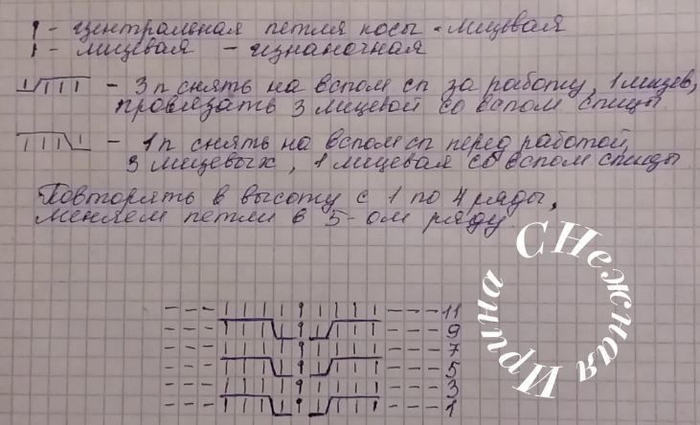 центральная петля косы - лицевая
| - лицевая - изнаночная
- 3 п снять на вспом сп за работу, 1 лицев,
провязать 3 лицевой со вспом спицы
- 1 п снять на вспом сп перед работой,
3 лицевых, 1 лицевая со вспом спицы
Повторять в высоту с 1 по 4 ряды,
меняем петли в 5-ом ряду.
11
9
7
5
3
1
СНежная Ирина